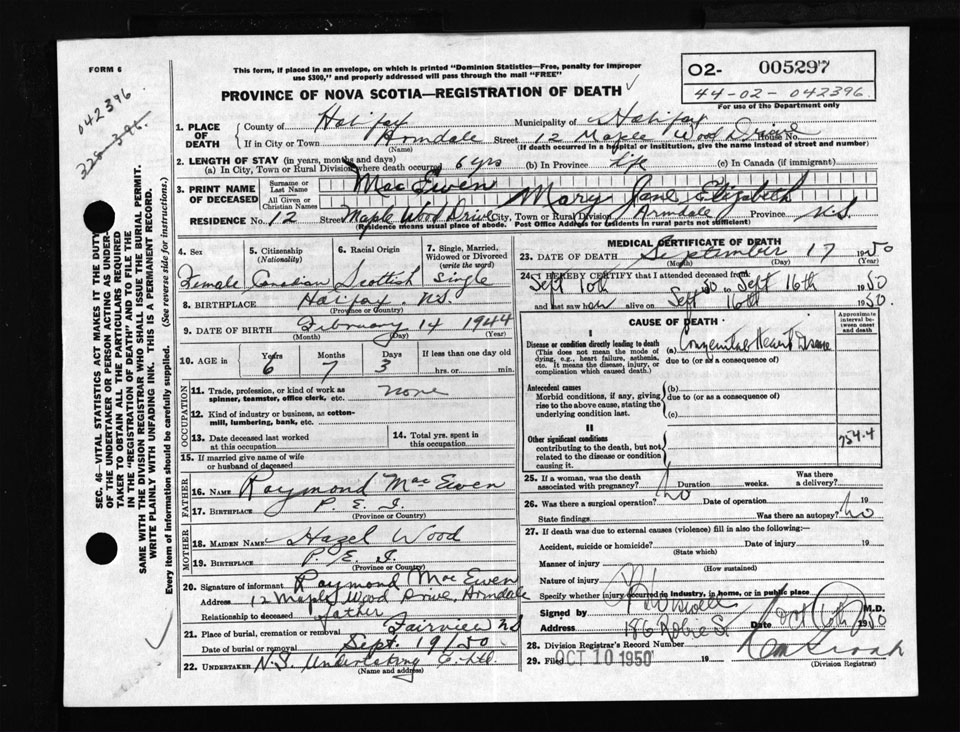 FORM 6
This form, if placed in an envelope, on which is printed "Dominion Statistics—Free, penalty for improper
use $300," and properly addressed will pass through the mail "FREE"
O2- 005297
44-02-042396
For use of the Department only
PROVINCE OF NOVA SCOTIA—REGISTRATION OF DEATH
042396
1. PLACE OF DEATH
County of Halifax Municipality of Halifax
If in City or Town Armdale Street 12 Maple Wood Drive House No.
(Name) (If death occurred in a hospital or institution, give the name instead of street and number)
2. LENGTH OF STAY (in years, months and days)
(a) In City, Town or Rural Division where death occurred 6 yrs (b) In Province Life (c) In Canada (if immigrant)
3. PRINT NAME OF DECEASED
Surname or Last Name MacEwen
All Given or Christian Names Mary Jane Elizabeth
RESIDENCE No. 12 Street Maple Wood Drive City, Town or Rural Division Armdale Province N.S.
(Residence means usual place of abode. Post Office Address for residents in rural parts not sufficient)
4. Sex Female
5. Citizenship (Nationality) Canadian
6. Racial Origin Scottish
7. Single, Married, Widowed or Divorced (write the word) Single
8. BIRTHPLACE Halifax. N.S.
(Province or Country)
9. DATE OF BIRTH February 14 1944
(Month) (Day) (Year)
10. AGE in Years Months Days If less than one day old
6 7 3 hrs. or min.
OCCUPATION
11. Trade, profession, or kind of work as spinner, teamster, office clerk, etc. none
12. Kind of industry or business, as cotton-mill, lumbering, bank, etc.
13. Date deceased last worked at this occupation
14. Total yrs. spent in this occupation
15. If married give name of wife or husband of deceased
FATHER
16. NAME Raymond MacEwen
17. BIRTHPLACE P.E.I.
(Province or Country)
MOTHER
18. MAIDEN NAME Hazel Wood
19. BIRTHPLACE P.E.I.
(Province or Country)
20. Signature of informant Raymond MacEwen
Address 12 Maple Wood Drive, Armdale
Relationship to deceased father
21. Place of burial, cremation or removal Fairview N.S.
Date of burial or removal Sept. 19/50
22. UNDERTAKER N.S. Undertaking Co. Ltd.
(Name and address)
MEDICAL CERTIFICATE OF DEATH
23. DATE OF DEATH September 17 1950
(Month) (Day) (Year)
24. I HEREBY CERTIFY that I attended deceased from
Sept 10th 50 to Sept 16th 1950
and last saw her alive on Sept 16th 1950.
CAUSE OF DEATH
Approximate interval between onset and death
I
Disease or condition directly leading to death (a) Congenital Heart Disease
(This does not mean the mode of dying, e.g., heart failure, asthenia, etc. It means the disease, injury, or complication which caused death.)
due to (or as a consequence of)
Antecedent causes (b)
Morbid conditions, if any, giving rise to the above cause, stating the underlying condition last.
due to (or as a consequence of)
(c)
II
Other significant conditions
contributing to the death, but not related to the disease or condition causing it.
754.4
25. If a woman, was the death associated with pregnancy? Duration weeks. Was there a delivery?
26. Was there a surgical operation? no Date of operation 19
State findings Was there an autopsy? no
27. If death was due to external causes (violence) fill in also the following:-
Accident, suicide or homicide? Date of injury 19
(State which)
Manner of injury
(How sustained)
Nature of injury
Specify whether injury occurred in industry, in home, or in public place
Signed by M.D.
Address 186 Robie St Date Oct 1950
28. Division Registrar's Record Number
29. Filed OCT 10 1950 19
(Division Registrar)
SEC. 46—VITAL STATISTICS ACT MAKES IT THE DUTY
OF THE UNDERTAKER OR PERSON ACTING AS UNDERTAKER TO OBTAIN ALL THE PARTICULARS REQUIRED
IN THE "REGISTRATION OF DEATH" AND TO FILE THE
SAME WITH THE DIVISION REGISTRAR WHO SHALL ISSUE THE BURIAL PERMIT.
WRITE PLAINLY WITH UNFADING INK. THIS IS A PERMANENT RECORD.
Every item of Information should be carefully supplied. (See reverse side for instructions.)